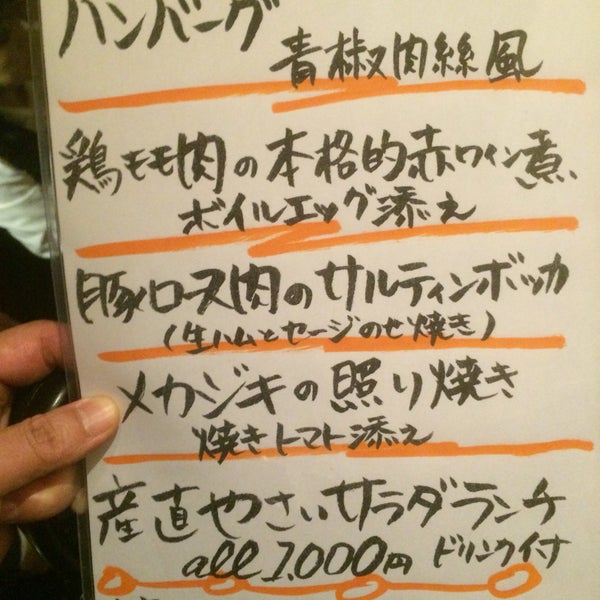 ハンバーグ
青椒肉絲風
鶏モモ肉の本格的赤ワイン煮、
ボイルエッグ添え
豚ロース肉のサルティンボッカ
(生ハムとセージのせ焼き)
メカジキの照り焼き
焼きトマト添え
産直やさいサラダランチ
all 1,000円 ドリンク付